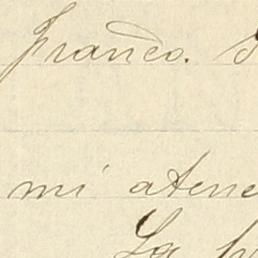 Franco.
mi aten
La